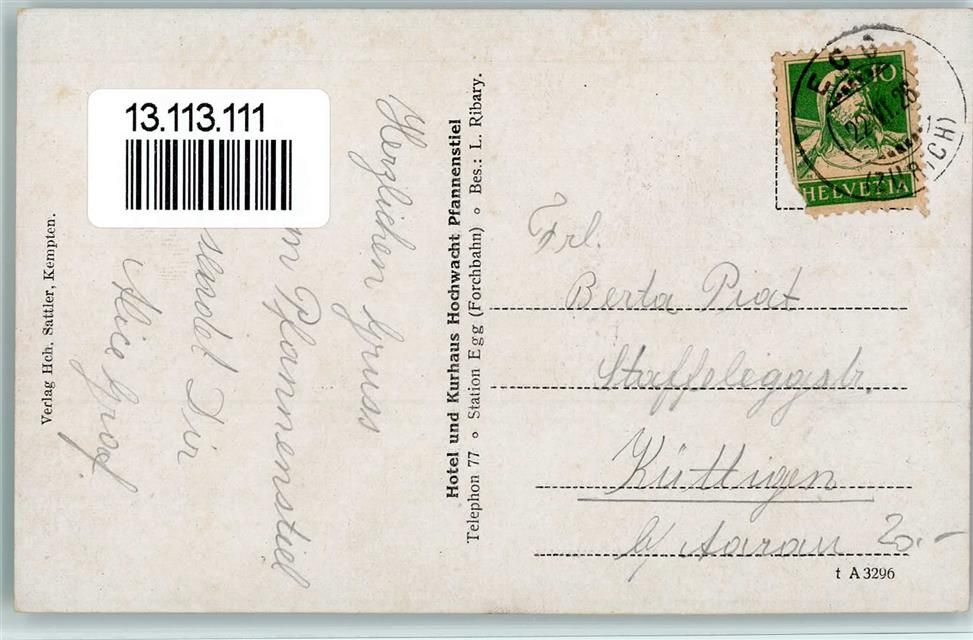 13.113.111
Herzlichen Gruss
m Pfannenstiel
sendet Dir
Alice Graf
Verlag Hch. Sattler, Kempten.
Hotel und Kurhaus Hochwacht Pfannenstiel
Telephon 77 o Station Egg (Forchbahn) o Bes.: L. Ribary.
10
HELVETIA
EGG
(ZÜRICH)
Frl.
Berta Prat
Staffeleggstr.
Küttigen
b/ Aarau
20.-
t A 3296